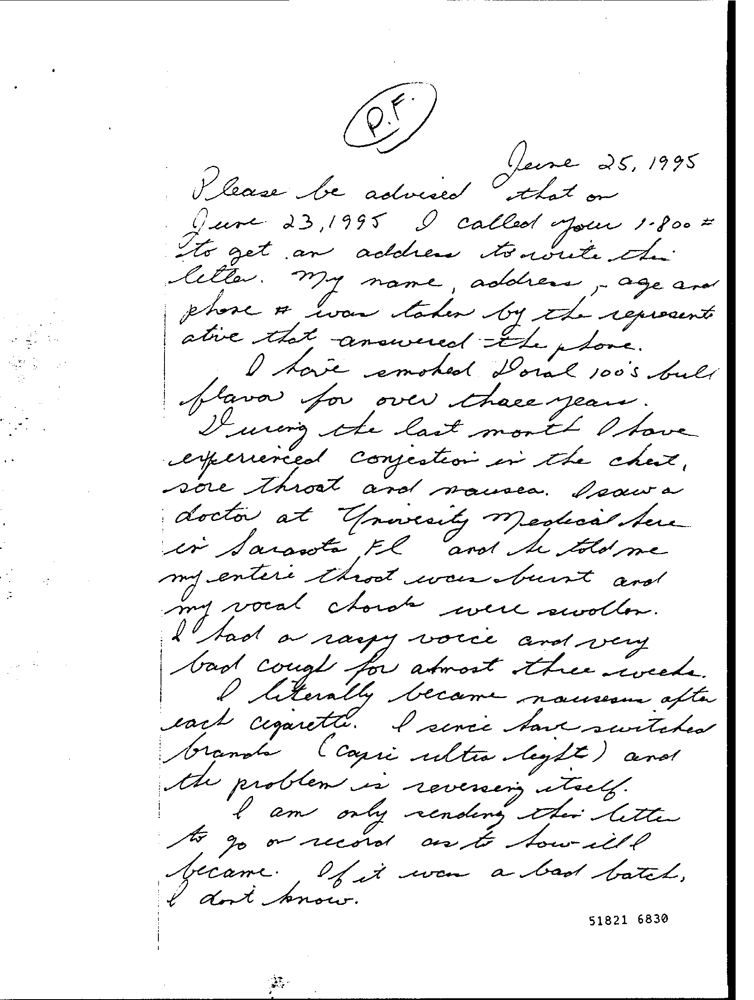 P.F.
June 25, 1995
Please be advised that on
June 23, 1995 I called your 1-800 #
to get an address to write this
letter. My name, address, age and
phone # was taken by the represent
ative that answered the phone.
I have smoked Doral 100's full
flavor for over three years.
During the last month I have
experienced conjestion in the chest,
sore throat and nausea. I saw a
doctor at University Medical here
in Sarasota, Fl and he told me
my entire throat was burnt and
my vocal chords were swollen.
I had a raspy voice and very
bad cough for almost three weeks.
I literally became nauseous after
each cigarette. I since have switched
brands (capri ultra light) and
the problem is reversing itself.
I am only sending this letter
to go on record as to how ill I
became. If it was a bad batch,
I don't know.
51821 6830